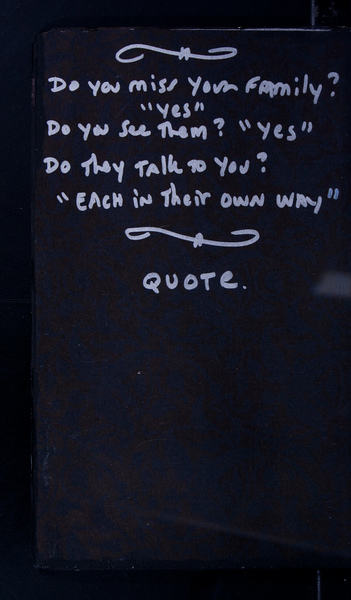 Do you miss your Family?
"yes"
Do you see them? "yes"
Do they talk to you?
"EACH in their OWN WAY"
QUOTE.